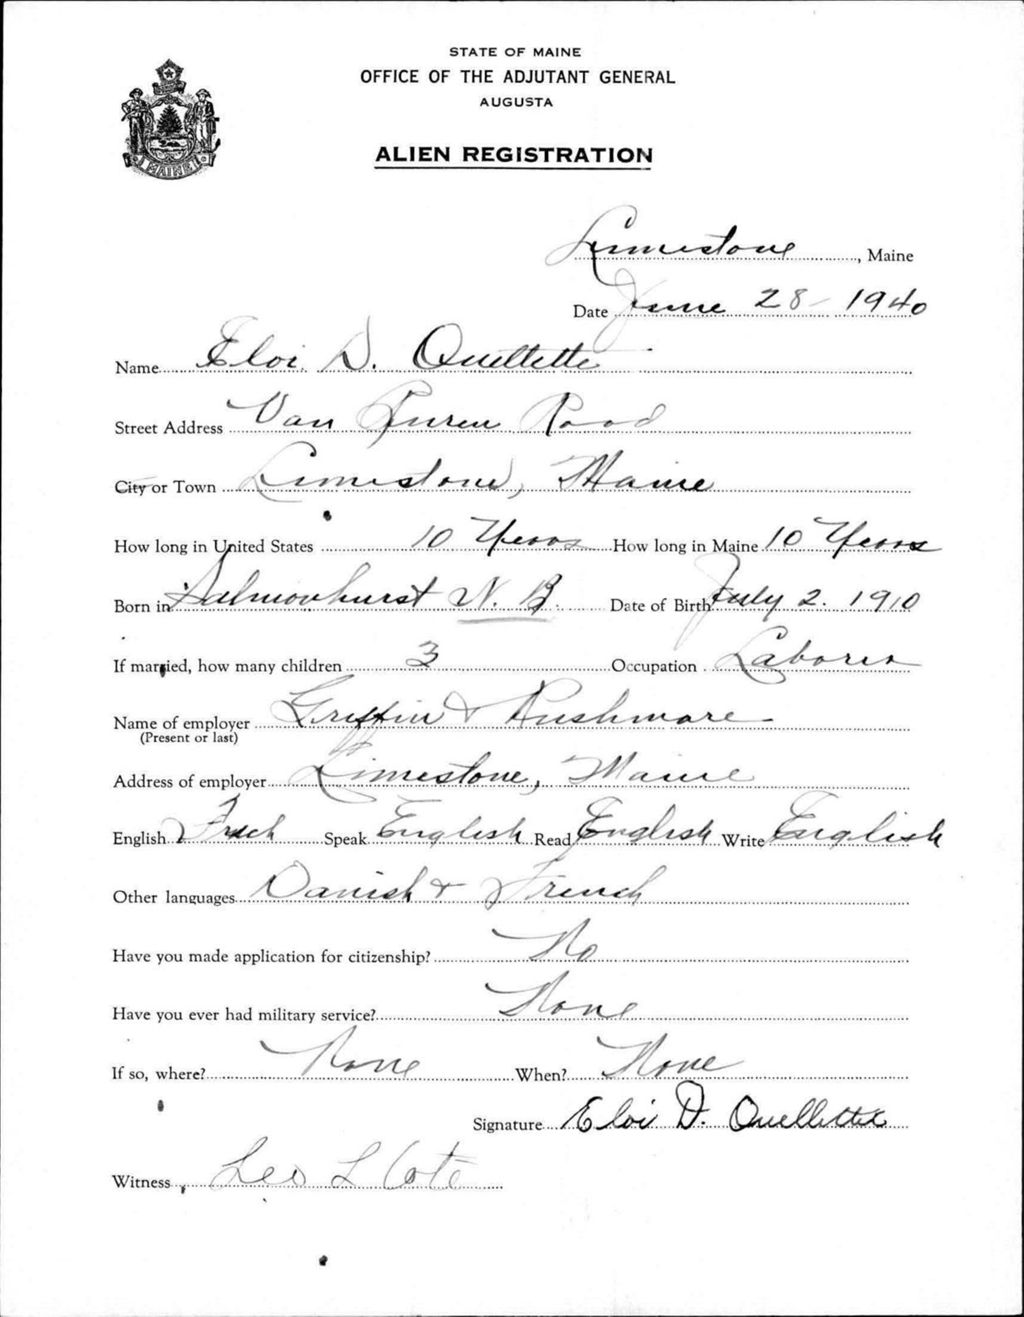 STATE OF MAINE
OFFICE OF THE ADJUTANT GENERAL
AUGUSTA
ALIEN REGISTRATION
MAINE
Limestone, Maine
Date June 28 - 1940
Name Eloi D. Ouellette
Street Address Van Buren Road
City or Town Limestone, Maine
How long in United States 10 Years How long in Maine 10 Years
Born in Salmonhurst N. B. Date of Birth July 2. 1910
If married, how many children 3 Occupation Laborer
Name of employer Griffin & Rushmore
(Present or last)
Address of employer Limestone, Maine
English French Speak English Read English Write English
Other languages Danish & French
Have you made application for citizenship? No
Have you ever had military service? None
If so, where? None When? None
Signature Eloi D. Ouellette
Witness Leo L Cote